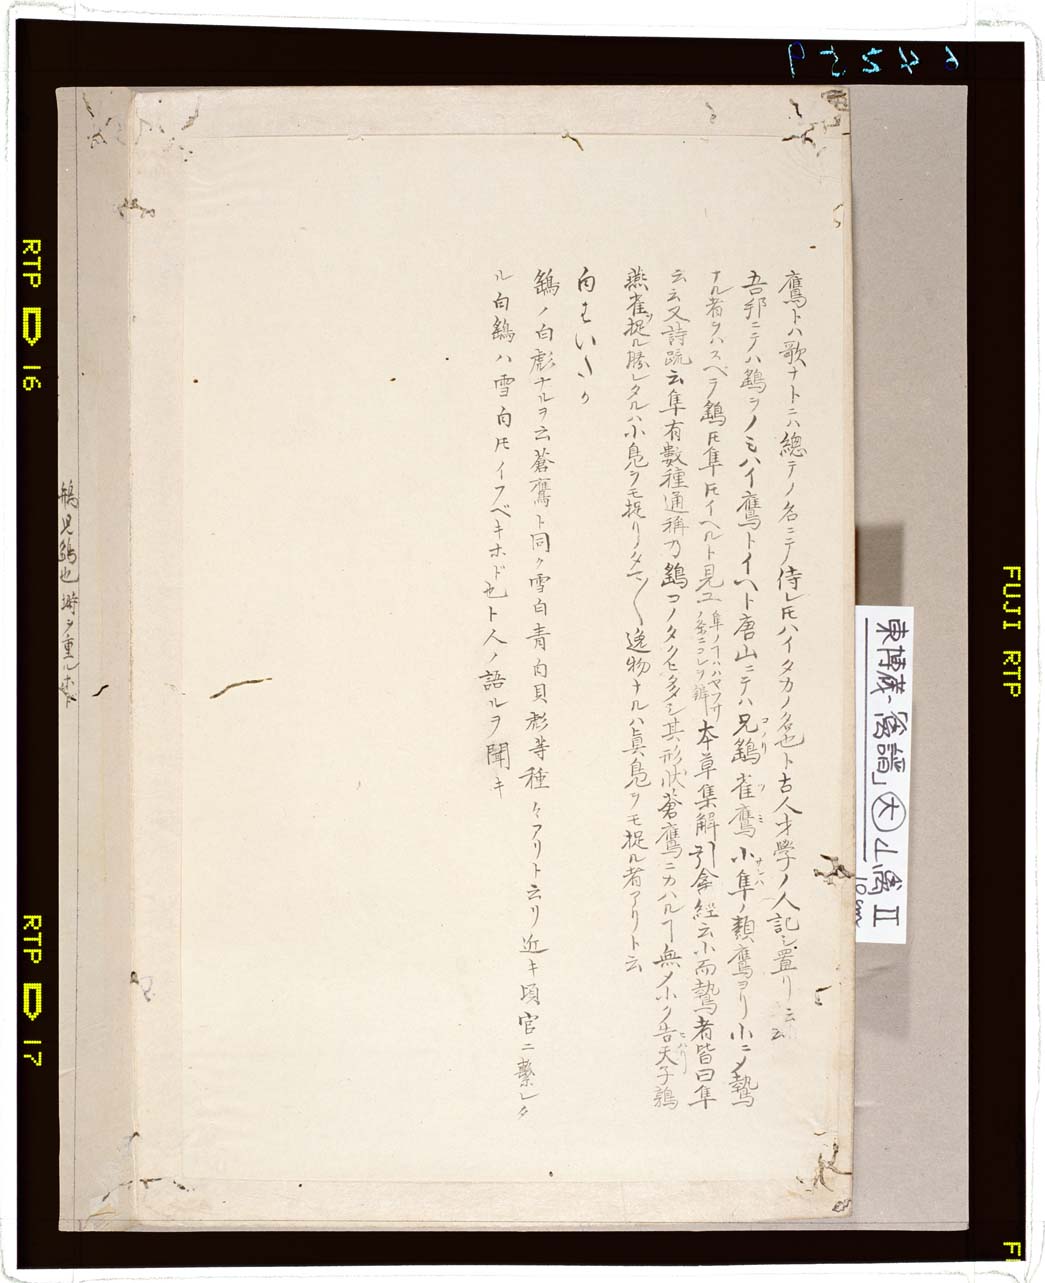 鷹トハ歌ナトニハ總テノ名ニテノ侍レ𪜈ハイタカノ名也ト古人才學ノ人記シ置リ云云
吾邦ニテハ鷂ヲノミハイ鷹トイヘト唐山ニテハ兄鷂雀鷹小隼ノ類鷹ヨリ小ニ〆鷙
コノリ ツミ サシハ
ナル者ヲハスベテ鷂𪜈隼𪜈イヘルト見ユ 本草集解引禽經云小而鷙者皆曰隼
隼ノヿハハヤフサ
ノ条ニコレヲ辨
云云又詩疏云隼有數種通稱乃鷂コノタクヒ多シ其形狀蒼鷹ニカハルヿ無〆小ク告天子鶉
ヒハリ
燕雀ヲ捉ル勝レタルハ小鳧ヲモ捉リ 逸物ナルハ眞鳧ヲモ捉ル者アリト云
白はいたか
鷂ノ白彪ナルヲ云蒼鷹ト同ク雪白青白貝彪等種々アリト云リ近キ頃官ニ繫レタ
ル白鷂ハ雪白𪜈イフベキホド也ト人ノ語ルヲ聞キ
東博蔵「禽譜」大 山禽II
RTP 16
RTP 17
FUJI RTP